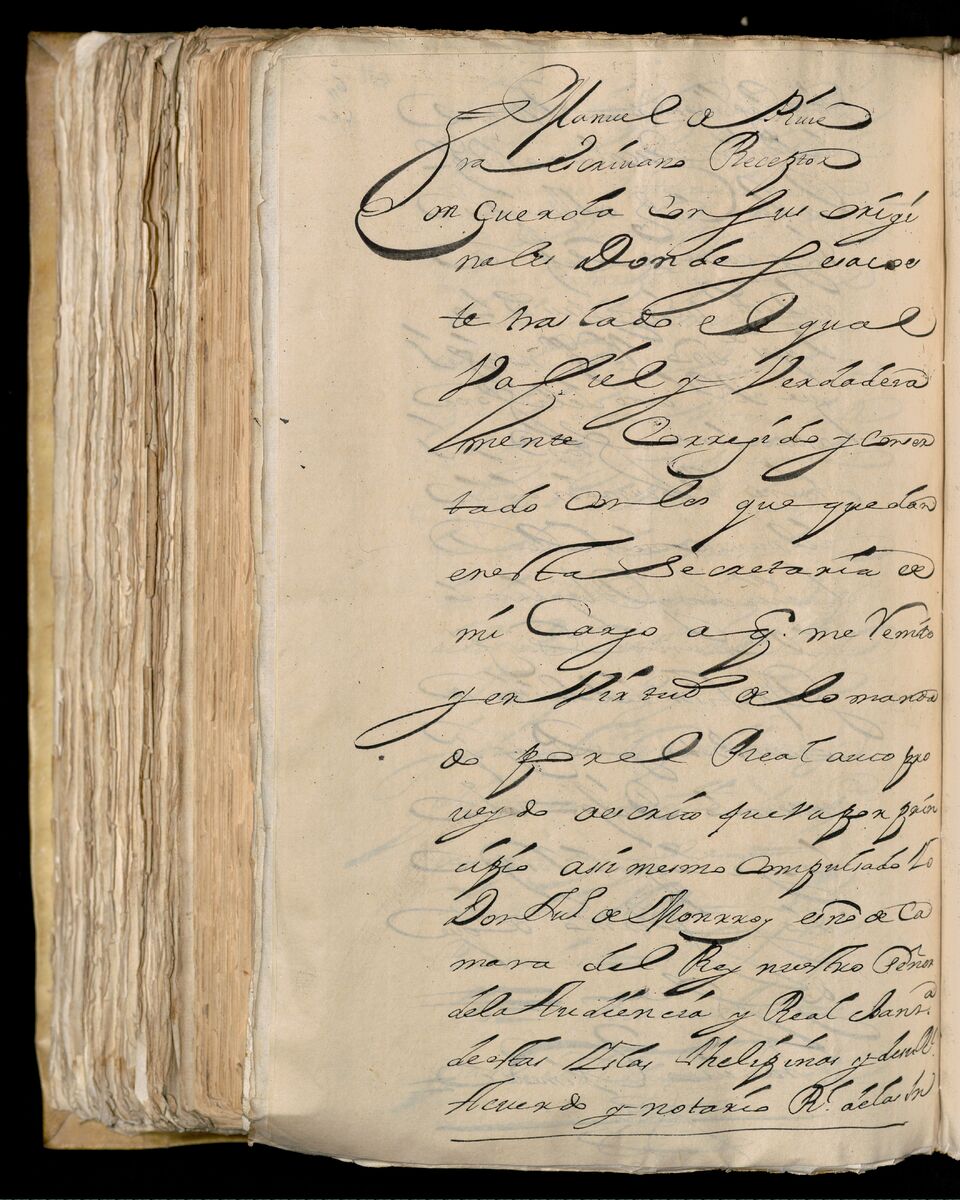 Manuel de Rive
ra escrivano Receptor
Concuerda con sus origi
nales Donde se saco es
te traslado el qual
Va fiel y Verdadera
mente Corregido y conser
tado con los que quedan
en esta Secretaria de
mi Cargo a q. me Remito
y en Virtud de lo manda
do por el Real auto pro
veydo a escrito que va por prin
cipio asimismo compulsado Yo
Don Jul de Monrroy esno de Ca
mara del Rey nuestro señor
de la Audiencia y Real chans.a
de estas Yslas Phelipinas y de su Rl.
Acuerdo y notario Rl. de las Yn